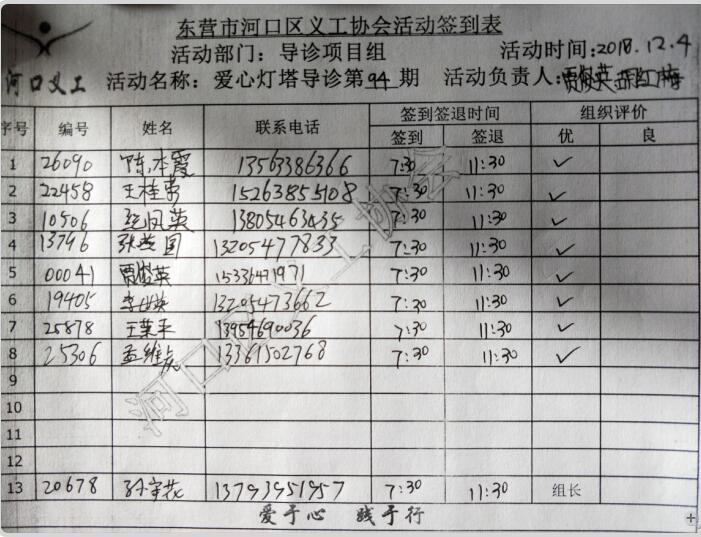 东营市河口区义工协会活动签到表
活动部门：导诊项目组 活动时间：2018.12.4
河口义工 活动名称：爱心灯塔导诊第94期 活动负责人：贾俊英
序号 编号 姓名 联系电话 签到签退时间 组织评价
签到 签退 优 良
1 26090 陈本霞 13563386366 7:30 11:30 ✓
2 22458 王桂荣 15263855108 7:30 11:30 ✓
3 10506 13805463435 7:30 11:30 ✓
4 13796 张兰国 13205477833 7:30 11:30 ✓
5 00041 贾俊英 15336471971 7:30 11:30 ✓
6 19405 李世英 13205473662 7:30 11:30 ✓
7 25878 王荣平 13954690036 7:30 11:30 ✓
8 25306 孟维虎 13361502768 7:30 11:30 ✓
9
10
11
12
13 20678 13793951957 7:30 11:30 组长
爱于心 践于行
河口区义工协会